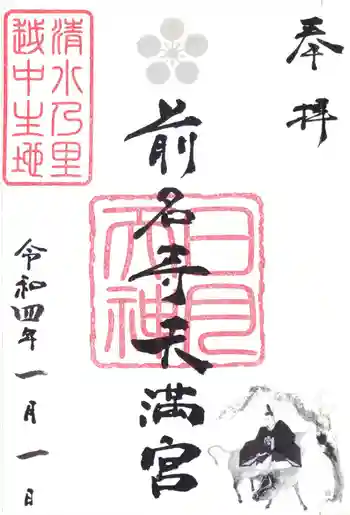 奉拝
前名寺天満宮
日月
天神
清水乃里
越中生地
令和四年一月一日